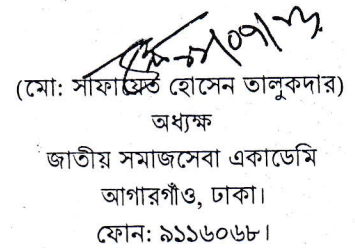 (মো: সাফায়েত হোসেন তালুকদার)
অধ্যক্ষ
জাতীয় সমাজসেবা একাডেমি
আগারগাঁও, ঢাকা।
ফোন: ৯১১৬০৬৮।